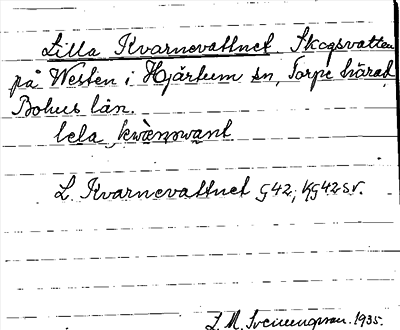 Lilla Kvarnevattnet. Skogsvatten
på Westen i Hjärtum sn, Torpe härad,
Bohus län.
lela
L. Kvarnevattnet G42; KG42 sv.
1935.